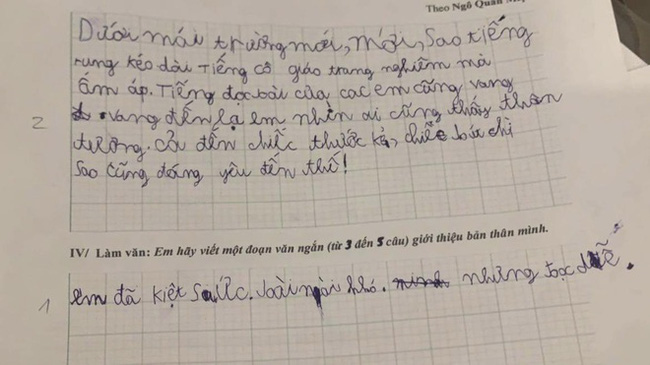 Theo Ngô Quân
Dưới mái trường mới, mới, sao tiếng
rung kéo dài Tiếng cô giáo trang nghiêm mà
ấm áp. Tiếng đọc bài của các em cũng vang
vang đến lạ em nhìn ai cũng thấy thân
tương. cả đến chiếc thước kẻ, chiếc bút chì
sao cũng đáng yêu đến thế!
2
IV/ Làm văn: Em hãy viết một đoạn văn ngắn (từ 3 đến 5 câu) giới thiệu bản thân mình.
1 em đã kiệt sức. bài khó. những dễ.